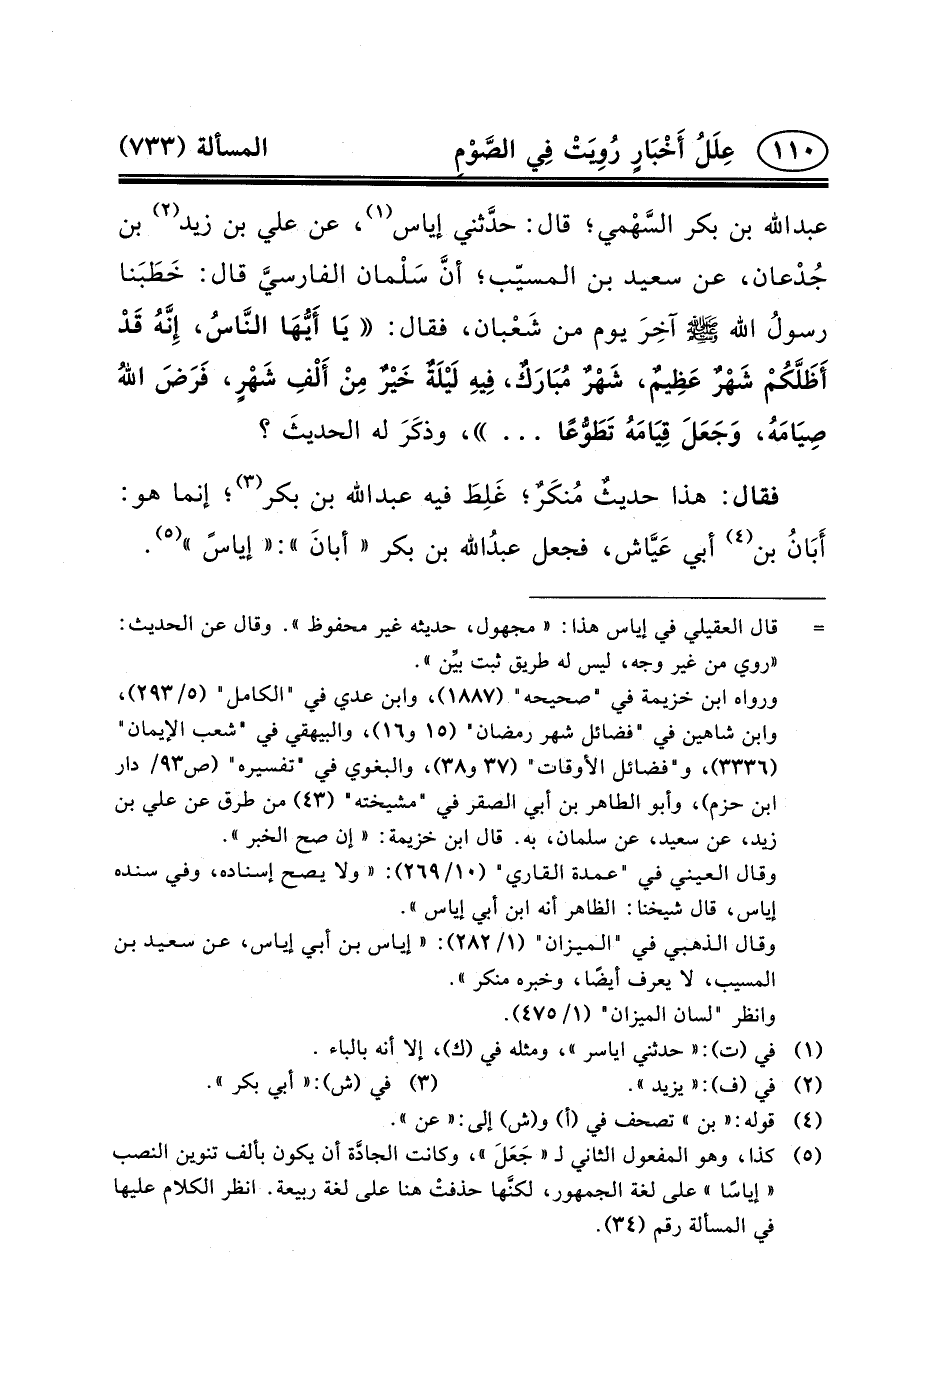 ١١٠ عِلَلُ أَخْبَارٍ رُوِيَتْ فِي الصَّوْمِ المسألة (٧٣٣)
عبدالله بن بكر السَّهْمي؛ قال: حدَّثني إياس(١)، عن علي بن زيد(٢) بن
جُدْعان، عن سعيد بن المسيّب؛ أنَّ سَلْمان الفارسيَّ قال: خَطَبَنا
رسولُ الله ﷺ آخِرَ يوم من شَعْبان، فقال: « يَا أَيُّهَا النَّاسُ، إِنَّهُ قَدْ
أَظَلَّكُمْ شَهْرٌ عَظِيمٌ، شَهْرٌ مُبَارَكٌ، فِيهِ لَيْلَةٌ خَيْرٌ مِنْ أَلْفِ شَهْرٍ، فَرَضَ اللهُ
صِيَامَهُ، وَجَعَلَ قِيَامَهُ تَطَوُّعًا ... »، وذكَرَ له الحديثَ ؟
فقال: هذا حديثٌ مُنكَرٌ؛ غَلِطَ فيه عبدالله بن بكر(٣)؛ إنما هو:
أَبَانُ بن(٤) أبي عَيَّاش، فجعل عبدُالله بن بكر « أبانَ »:« إياسً »(٥).
= قال العقيلي في إياس هذا: « مجهول، حديثه غير محفوظ ». وقال عن الحديث:
«روي من غير وجه، ليس له طريق ثبت بيِّن ».
ورواه ابن خزيمة في "صحيحه" (١٨٨٧)، وابن عدي في "الكامل" (٥/ ٢٩٣)،
وابن شاهين في "فضائل شهر رمضان" (١٥ و١٦)، والبيهقي في "شعب الإيمان"
(٣٣٣٦)، و"فضائل الأوقات" (٣٧ و٣٨)، والبغوي في "تفسيره" (ص٩٣/ دار
ابن حزم)، وأبو الطاهر بن أبي الصقر في "مشيخته" (٤٣) من طرق عن علي بن
زيد، عن سعيد، عن سلمان، به. قال ابن خزيمة: « إن صح الخبر ».
وقال العيني في "عمدة القاري" (١٠/ ٢٦٩): « ولا يصح إسناده، وفي سنده
إياس، قال شيخنا: الظاهر أنه ابن أبي إياس ».
وقال الذهبي في "الميزان" (١/ ٢٨٢): « إياس بن أبي إياس، عن سعيد بن
المسيب، لا يعرف أيضًا، وخبره منكر ».
وانظر "لسان الميزان" (١/ ٤٧٥).
(١) في (ت):« حدثني اياسر »، ومثله في (ك)، إلا أنه بالباء .
(٢) في (ف):« يزيد ». (٣) في (ش):« أبي بكر ».
(٤) قوله:« بن » تصحف في (أ) و(ش) إلى:« عن ».
(٥) كذا، وهو المفعول الثاني لـ « جَعَلَ »، وكانت الجادَّة أن يكون بألف تنوين النصب
« إياسًا » على لغة الجمهور، لكنَّها حذفتْ هنا على لغة ربيعة. انظر الكلام عليها
في المسألة رقم (٣٤).